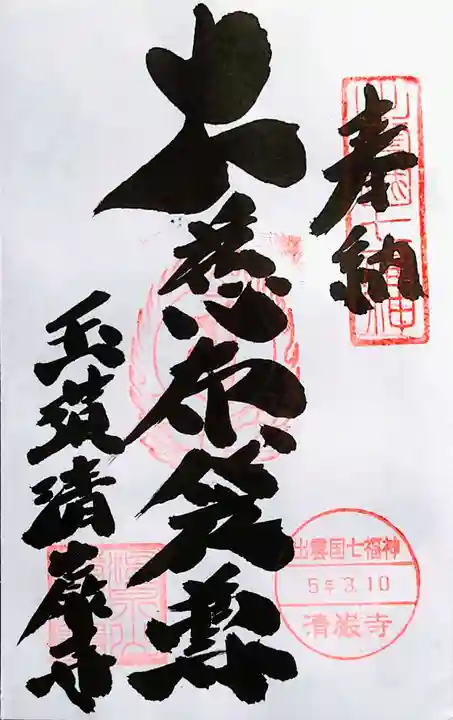 奉納
出雲国七福神
大慈布袋尊
出雲国七福神
5年3.10
清巌寺
玉造清巌寺